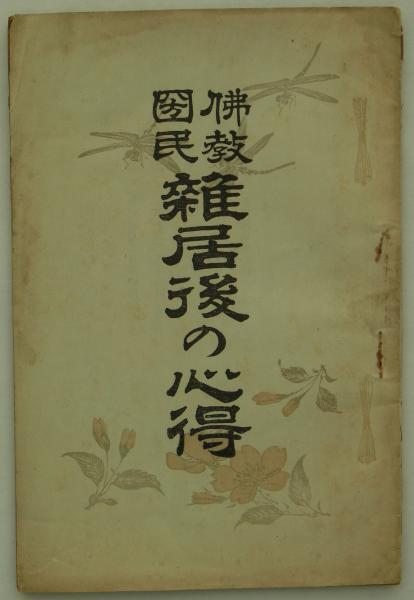 佛教
国民
雜居後の心得